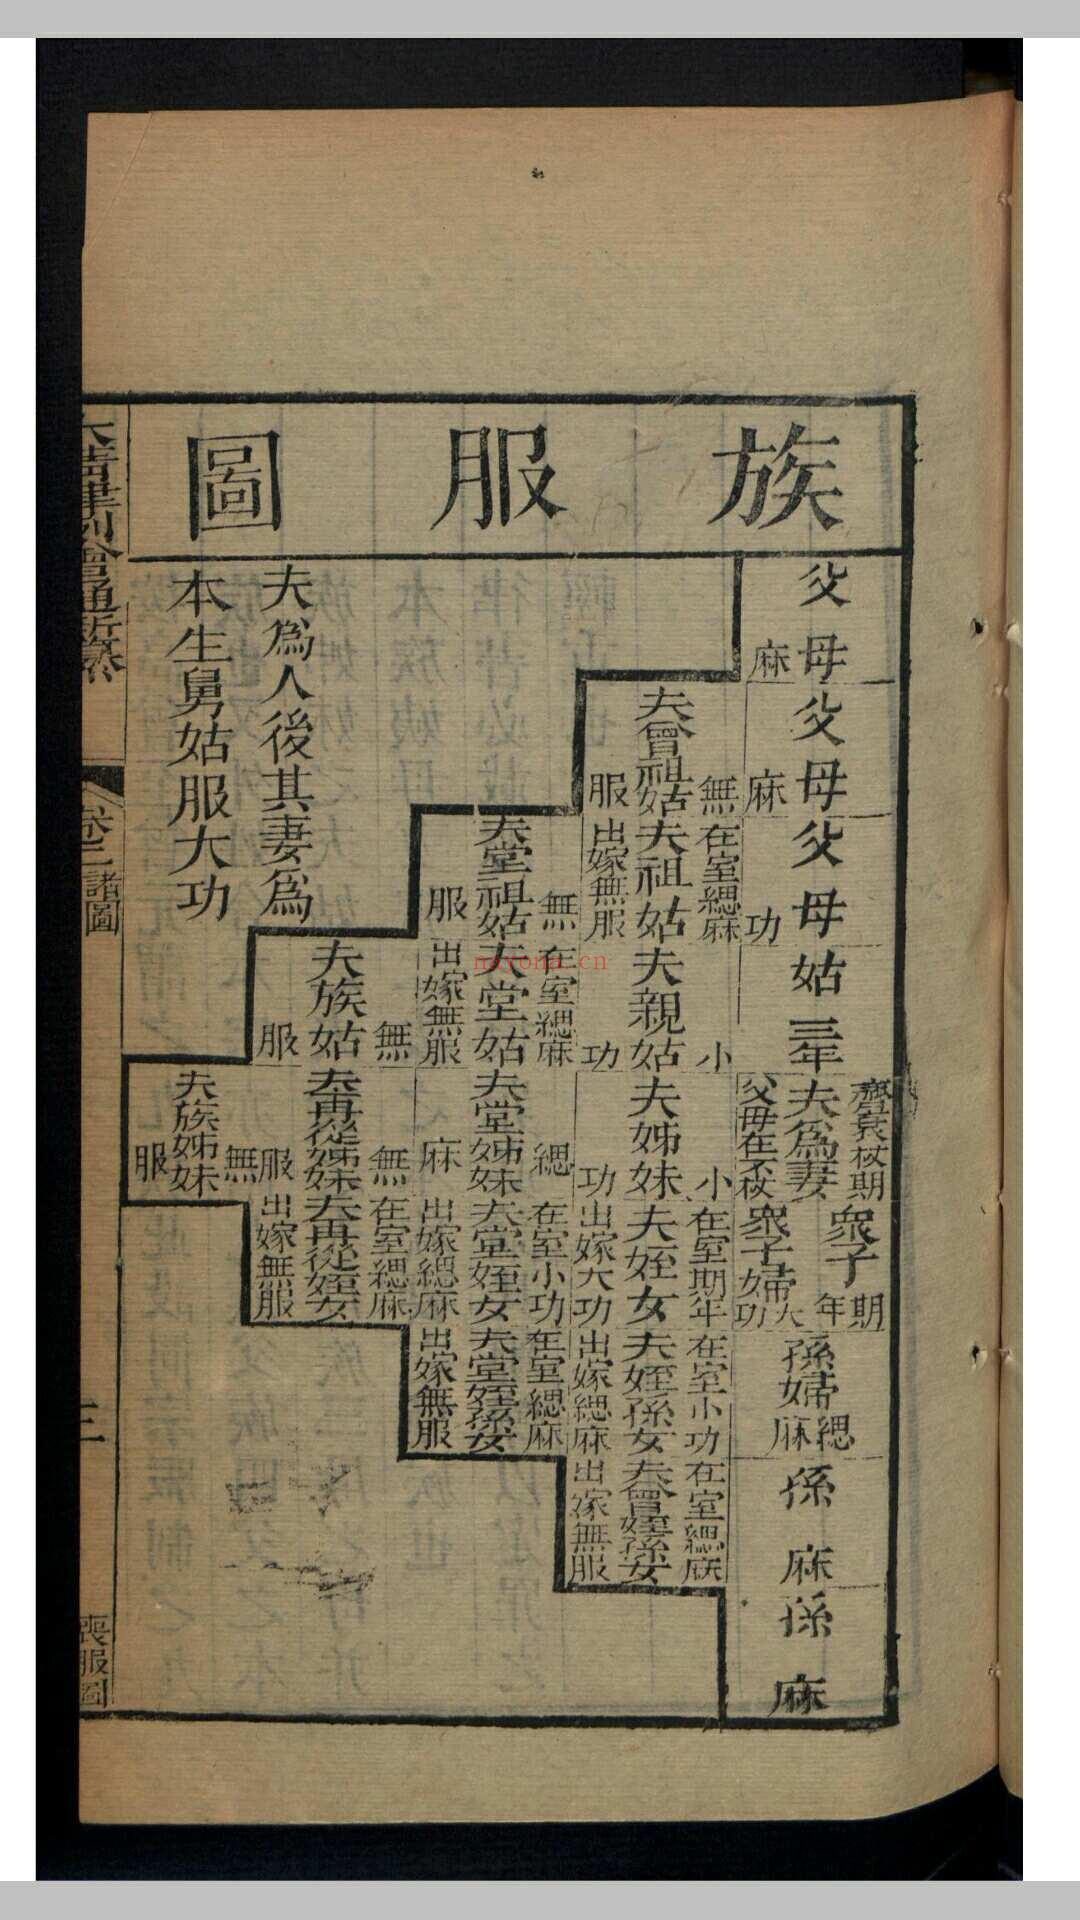 族服圖
父母
麻
父母
麻
父母
功
姑
三年
齊衰杖期
夫為妻
父母在不杖
眾子
期年
眾子婦
大功
孫婦
緦麻
孫
麻
孫
麻
夫曾祖姑
無服
在室緦麻
夫祖姑
出嫁無服
夫親姑
小功
夫姊妹
小功
在室期年
夫姪女
出嫁大功
在室小功
夫姪孫女
出嫁緦麻
在室緦麻
夫曾姪孫女
出嫁無服
夫堂祖姑
無服
在室緦麻
夫堂姑
出嫁無服
夫堂姊妹
緦麻
在室小功
夫堂姪女
出嫁緦麻
在室緦麻
夫堂姪孫女
出嫁無服
夫族姑
無服
夫再從姊妹
無服
在室緦麻
夫再從姪女
出嫁無服
夫族姊妹
無服
夫為人後其妻為
本生舅姑服大功
大清律例會通新纂
卷二諸圖
三
喪服圖
nayona.cn